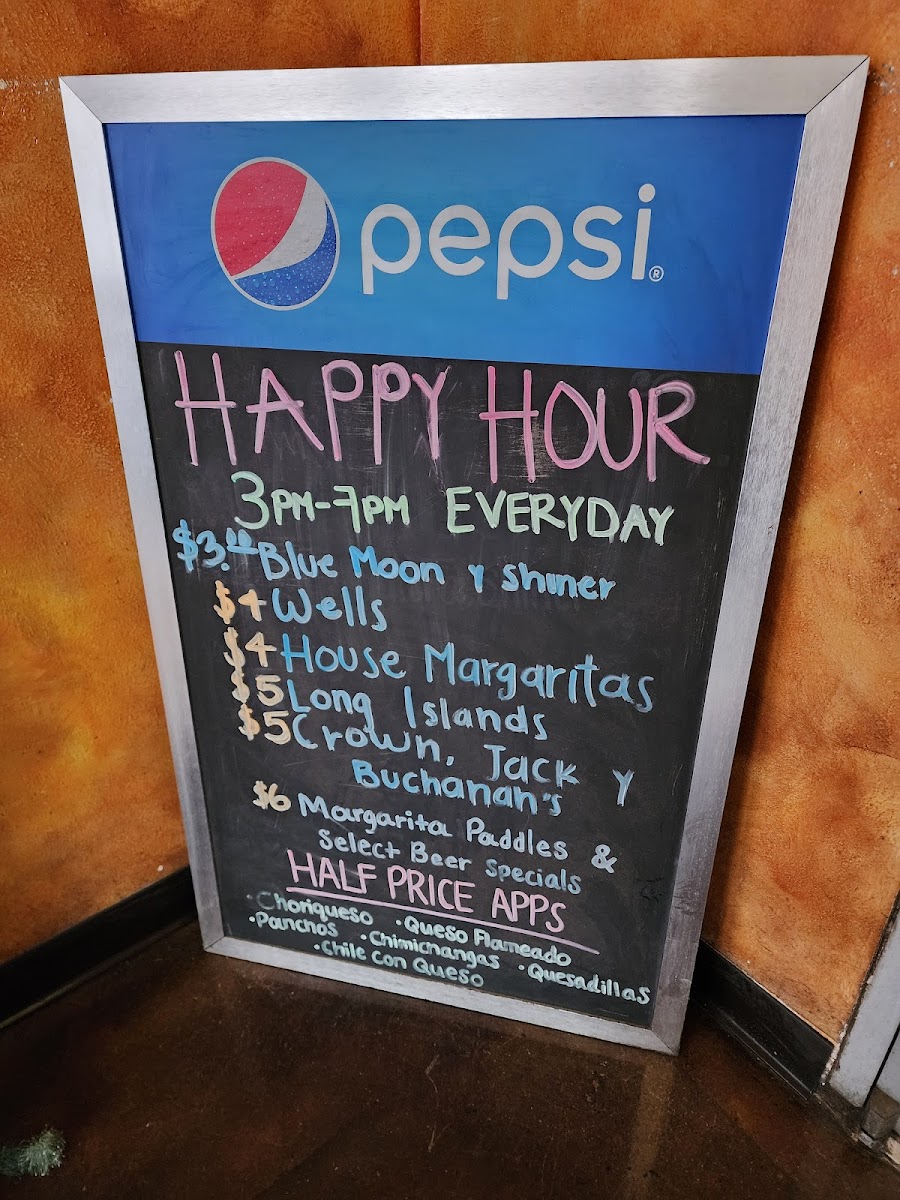 pepsi®
HAPPY HOUR
3PM-7PM EVERYDAY
$3.00 Blue Moon y Shiner
$4 Wells
$4 House Margaritas
$5 Long Islands
$5 Crown, Jack y
Buchanan's
$6 Margarita Paddles &
Select Beer Specials
HALF PRICE APPS
• Choriqueso • Queso Flameado
• Panchos • Chimichangas • Quesadillas
• Chile con Queso